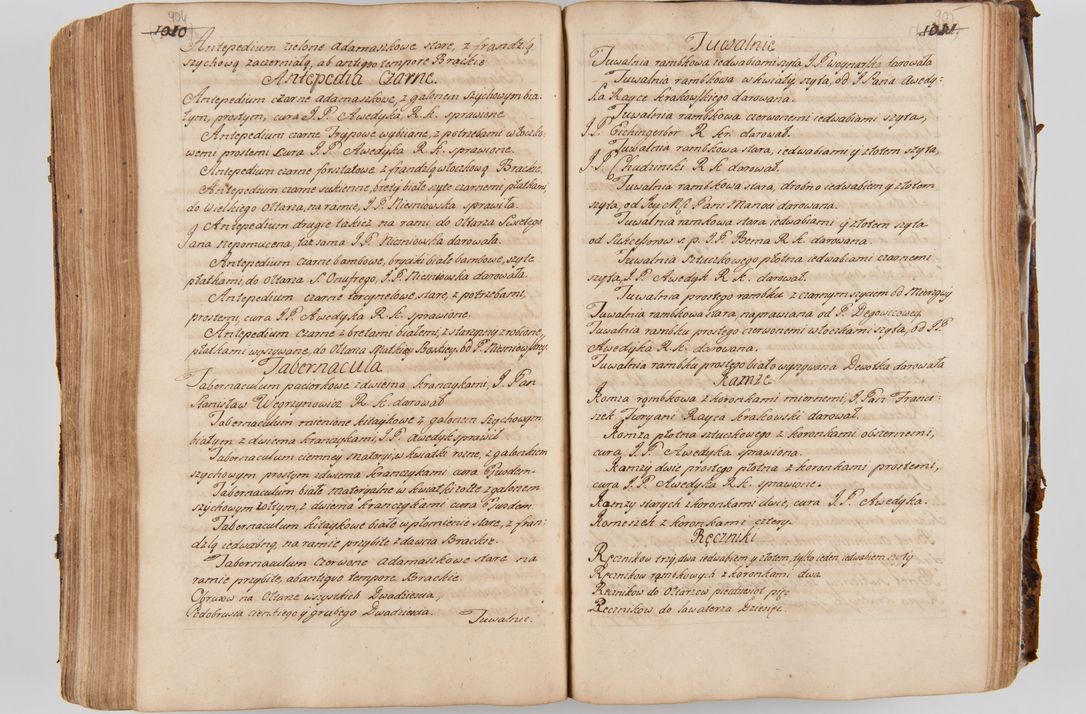 904
1010
Antepedium zielone adamaszkowe stare, z frandzlą
szychową zaczernialą, ab antiquo tempore Brackie
Antepedia Czarne.
Antepedium czarne adamaszkowe, z galonem szychowym bia-
łym, prostym, cura J. P. Awedyka R. k. sprawione
Antepedium czarne Trypowe wybiane, z potrzebami włoczko-
wemi prostemi cura J. P. Awedyka R. k. sprawione.
Antepedium czarne forsztatowe z frandzlą włoczkową Brackie.
Antepedium czarne sukienne, brety białe szyte czarnemi płatkami
do Wielkiego Ołtarza, na ramie, J. P. Niesniowska sprawiła.
9 Antepedium drugie takież na rami do Ołtarza Swietego
Jana Neponucena, taż sama J. P. Niesniowska darowała.
Antepedium czarne bambowe, brytki białe bambowe, szyte
płatkami, do Ołtarza S. Onufrego, J. P. Niesniowska darowała.
Antepedium czarne tercynelowe stare, z potrzebami,
prostemi, cura J. P. Awedyka R. k. sprawione.
Antepedium czarne z bretami białemi, z starzyzny zrobione,
płatkami wyszywane, do Ołtarza Matki Boskiey, od P. Niesniowskiey.
Tabernacula
Tabernaculum paciorkowe zdwiema kranczykami, J. Pan
Stanisław Węgrzynowicz R. k. darował
Tabernaculum mienione kitaykowe z galonem szychowym
białym z dwiema kranczykami, J. P. Awedyk sprawił
Tabernaculum ciemney materyi, w kwiatki rozne, z galonkiem
szychowym prostym zdwiema kranczykami cura Ejusdem.
Tabernaculum białe materyalne w kwiatki zołte z galonem
szychowym zołtym, z dwiema kranczykami cura Ejusdem.
Tabernaculum kitaykowe białe w płomienie stare, z fran-
dzlą iedwabną, na ramie przybite zdawna Brackie.
Tabernaculum czerwone adamaszkowe stare na
ramie przybite, ab antiquo tempore Brackie.
Obrusow na Ołtarze wszystkich Dwadziescia,
Podobrusia cienkiego y grubego Dwadziescia.
Tuwalnie.
905
1011
Tuwalnie
Tuwalnia rambkowa iedwabiami szyta J. P. Woynarska darowała
Tuwalnia rambkowa w kwiaty szyta, od J. Pana Awedy-
ka Rayce krakowskiego darowana.
Tuwalnia rambkowa czerwonemi iedwabiami szyta,
J. P. Eichingerber R. kr. darował.
Tuwalnia rambkowa stara, iedwabiami y złotem szyta,
J. P. Chudzinski R. k. darował.
Tuwalnia rambkowa stara, drobno iedwabiem y złotem
szyta, od Jey Mci Pani Manou darowana.
Tuwalnia ramkowa stara iedwabiami y złotem szyta
od Sukcessorow s. p. J. P. Berna R. k. darowana.
Tuwalnia Sztuczkowego płotna iedwabiami czarnemi
szyta, J. P. Awedyk R. k. darował.
Tuwalnia prostego rambku z czarnym szyciem od Mierzgiey
Tuwalnia rambkowa stara, naprawiana od P. Degowicowey
Tuwalnia rambku prostego czerwonemi włoczkami szyta, od J. P.
Awedyka R. k. darowana.
Tuwalnia rambku prostego biało wyszywana Dewotka darowała
Ramże
Romza rambkowa z koronkami miernemi, J. Pan Franci-
szek Torryani Rayca krakowski darował.
Romza płotna sztuczkowego z koronkami obszernemi,
cura J. P. Awedyka sprawiona.
Ramzy dwie prostego płotna z koronkami prostemi,
cura J. P. Awedyka R. k. sprawione.
Ramzy starych z koronkami dwie, cura J. P. Awedyka.
Romeszek z koronkami cztery.
Ręczniki
Ręcznikow trzy, dwa iedwabiem y złotem, tylko ieden iedwabiem szyty
Ręcznikow rambkowych z koronkami dwa
Ręcznikow do Ołtarzow piedziesiąt pięć
Ręcznikow do lawaterza Dziesięć.